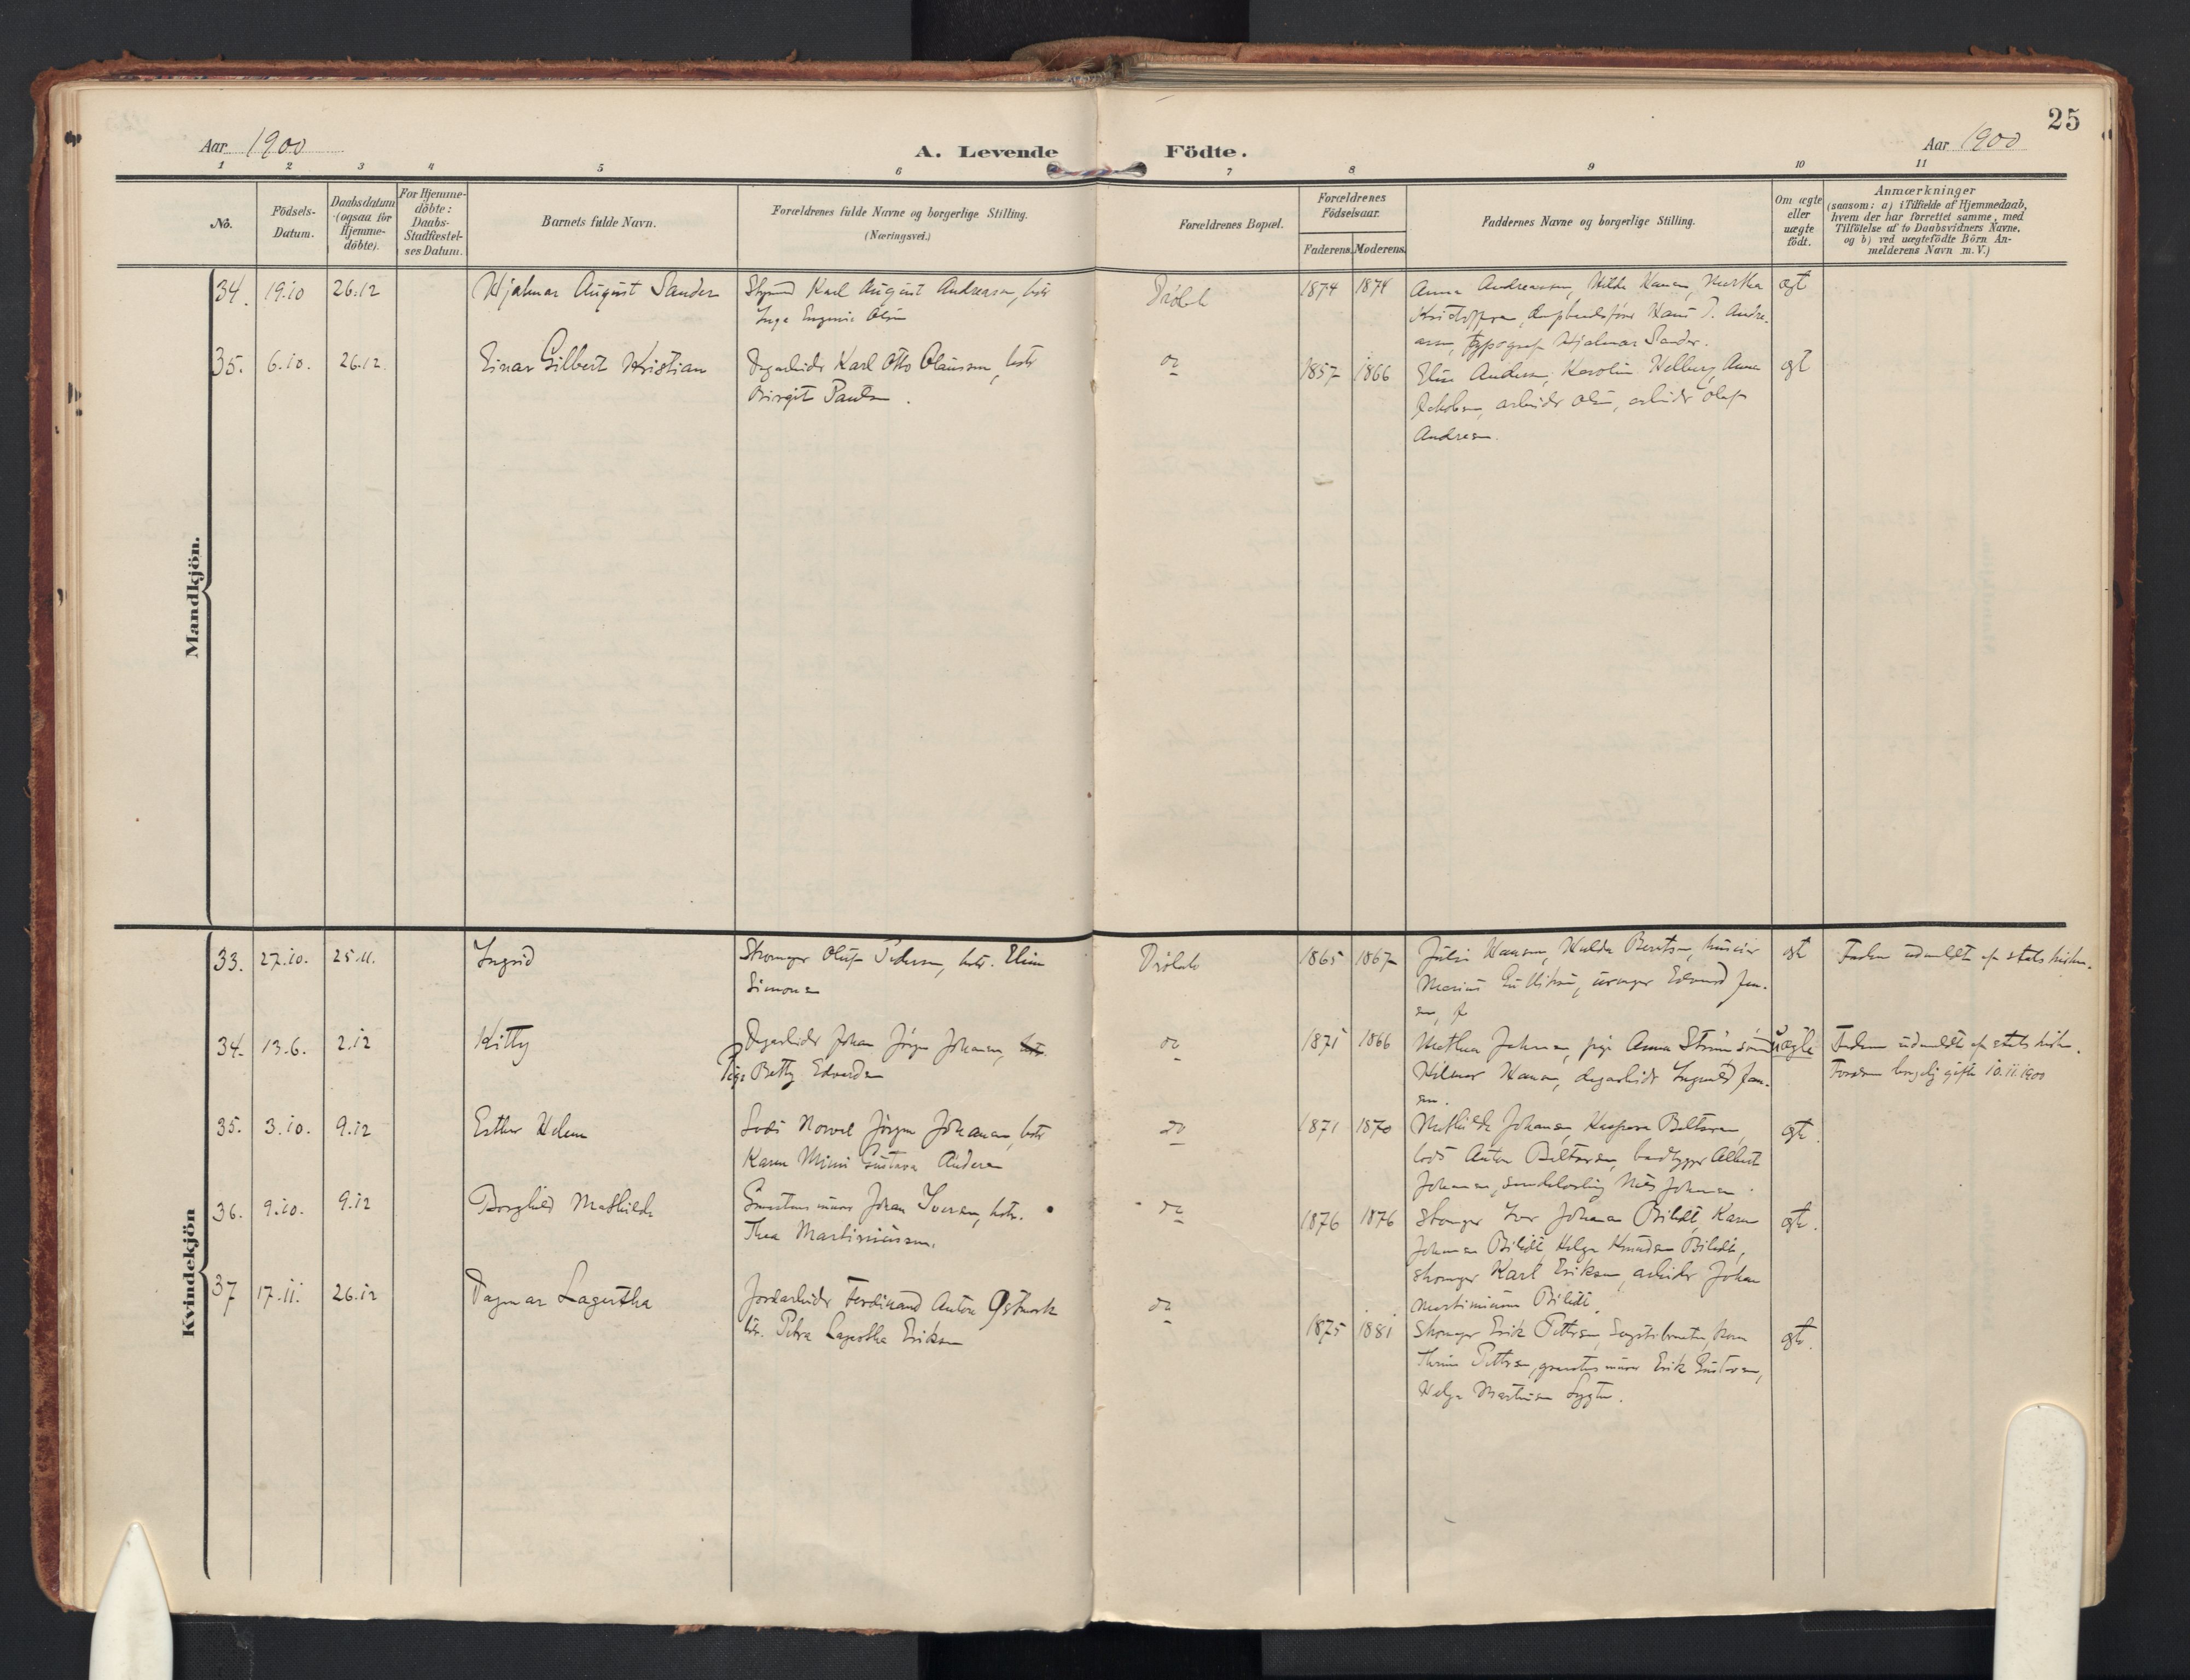 25
Aar 1900
A. Levende Födte.
Aar 1900
1 2 3 4 5 6 7 8 9 10 11
No.
Födsels-
Datum.
Daabsdatum
(ogsaa for
Hjemme-
döbte).
For Hjemme-
döbte:
Daabs-
Stadfæstel-
ses Datum.
Barnets fulde Navn.
Forældrenes fulde Navne og borgerlige Stilling.
(Næringsvei.)
Forældrenes Bopæl.
Forældrenes
Födselsaar.
Faderens. Moderens.
Faddernes Navne og borgerlige Stilling.
Om ægte
eller
uægte
födt.
Anmærkninger
(saasom: a) i Tilfælde af Hjemmedaab,
hvem der har forrettet samme, med
Tilföielse af to Daabsvidners Navne,
og b) ved uægtefödte Börn An-
melderens Navn m. V.)
Mandkjön.
34. 19.10 26.12 Hjalmar August Sander
Karl August Andreasen, hstr
Inga Eugenie Olsen
Dröbak
1874 1874
Anna Andreassen, Hilda Hansen, Martha
Kristoffersen, Hans P. Andre-
asen, typograf Hjalmar Sander.
ægt
35. 6.10. 26.12. Einar Gilbert Kristian
Dagarbeider Karl Otto Olaussen, hstr
Birgit Paulsen.
do
1857 1866
Elise Andersen, Karolin Kolberg, Anna
Jakobsen, arbeider Olsen, arbeider Olaf
Andresen.
ægt
Kvindekjön
33. 27.10. 25.11. Ingrid
Skomager Oluf Pedersen, hstr. Elin
Simonsen
Dröbak
1865 1867
Julie Hansen, Hulda Berntsen,
Marius Gulliksen, urmager Edvard Jen-
sen,
ægt
Faderen udmeldt af statskirken.
34. 13.6. 2.12 Kitty
Dagarbeider Johan Jörgen Johansen, hstr.
Pige Betty Edvardsen
do
1871 1866
Mathea Johnsen, pige Anna Ström,
Hilmar Hansen, dagarbeider Ingvald Jan-
sen.
uægte
Faderen udmeldt af statskirken.
Foræld. borgerlig gifte 10.11.1900
35. 3.10. 9.12 Esther Helene
Lods Norvel Jörgen Johansen, hstr
Karen Mimi Gustava Andersen
do
1871 1870
Mathilde Johansen, Kaspara Beltersen,
lods Anton Beltersen, Albert
Johansen, Nils Johnsen.
ægte.
36. 9.10. 9.12 Borghild Mathilde
Johan Iversen, hstr.
Thea Martiniussen.
do
1876 1876
Skomager Iver Johansen Biledt, Karen
Johansen Biledt, Helga Knudsen Biledt,
skomager Karl Eriksen, arbeider Johan
Martiniussen Biledt.
ægte.
37 17.11. 26.12 Dagmar Lagertha
Jordarbeider Ferdinand Anton Østmork
hstr. Petra Lagertha Eriksen
do
1875 1881
Skomager Erik Pettersen,
Pettersen, Erik Gustavsen,
Helga Martinsen
ægte.